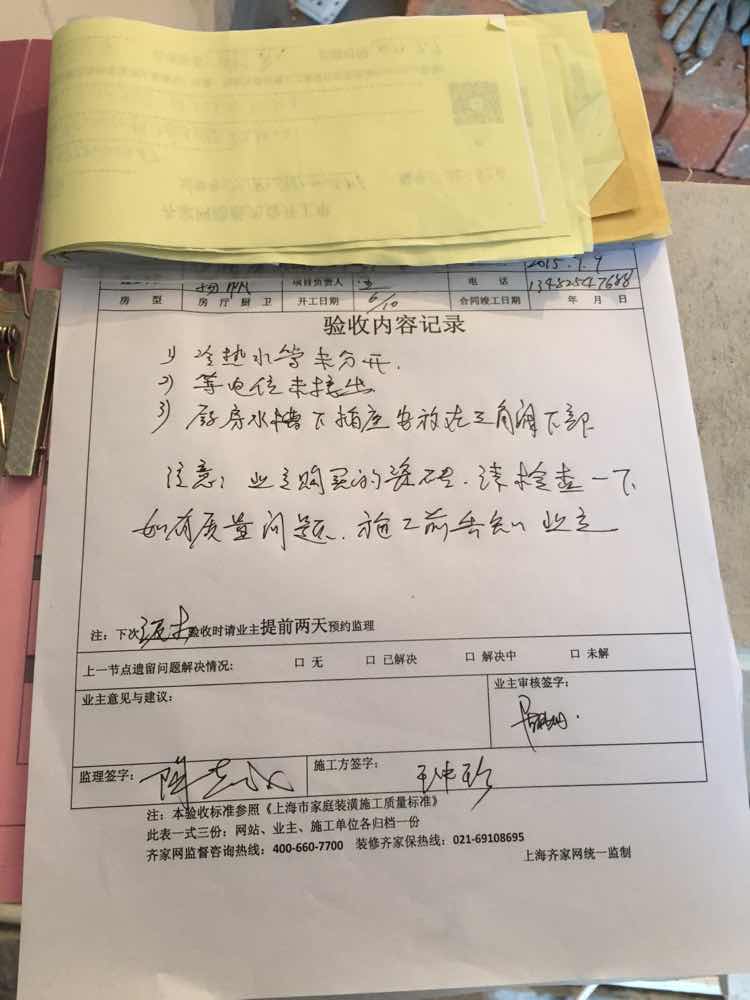 2015.7.9
项目负责人 电 话 13482547688
房 型 房 厅 厨 卫 开工日期 6/10 合同竣工日期 年 月 日
验收内容记录
1) 冷热水管未分开.
2) 等电位未接出
3) 厨房水槽下插座安放在三角阀下部
注意: 业主购买的瓷砖.请检查一下
如有质量问题.施工前告知业主
注:下次泥木验收时请业主提前两天预约监理
上一节点遗留问题解决情况: 口 无 口 已解决 口 解决中 口 未解
业主意见与建议: 业主审核签字:
监理签字: 施工方签字:
注:本验收标准参照《上海市家庭装潢施工质量标准》
此表一式三份:网站、业主、施工单位各归档一份
齐家网监督咨询热线:400-660-7700 装修齐家保热线:021-69108695
上海齐家网统一监制